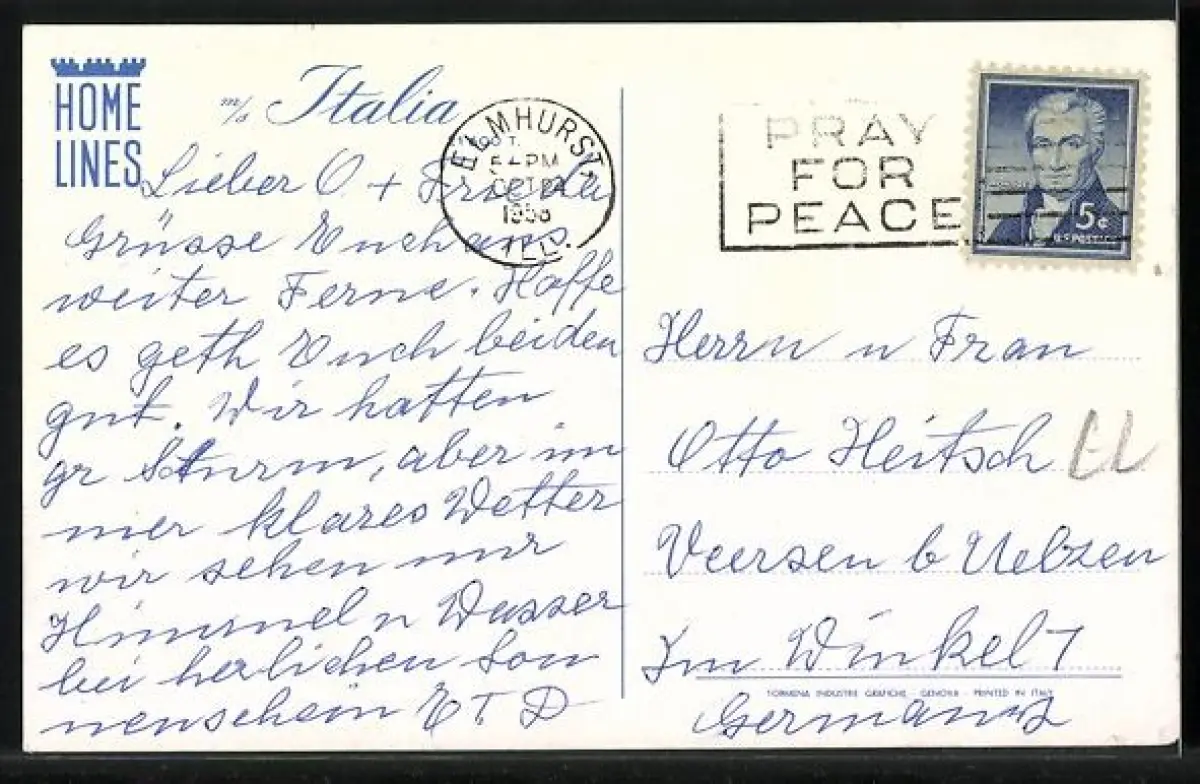 HOME
LINES
m/s Italia
Lieber O + Frieda
Grüsse Euch aus
weiter Ferne. Hoffe
es geth Euch beiden
gut. Wir hatten
gr Sturm, aber im
mer klares Wetter
wir sehen nur
Himmel u Wasser
bei herlichen Son
nenschein E. T. D
ELMHURST,
PM
OCT
ILL.
PRAY
FOR
PEACE
5¢
U.S. POSTAGE
Herrn u Frau
Otto Heitsch
Veersen b Uelzen
Im Winkel 7
TORMENA INDUSTRIE GRAFICHE - GENOVA - PRINTED IN ITALY
Germany